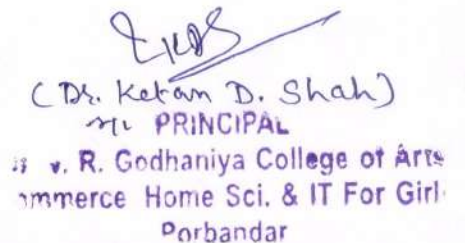 (Dr. Ketan D. Shah)
PRINCIPAL
v. R. Godhaniya College of Arts
ommerce Home Sci. & IT For Girl
Porbandar